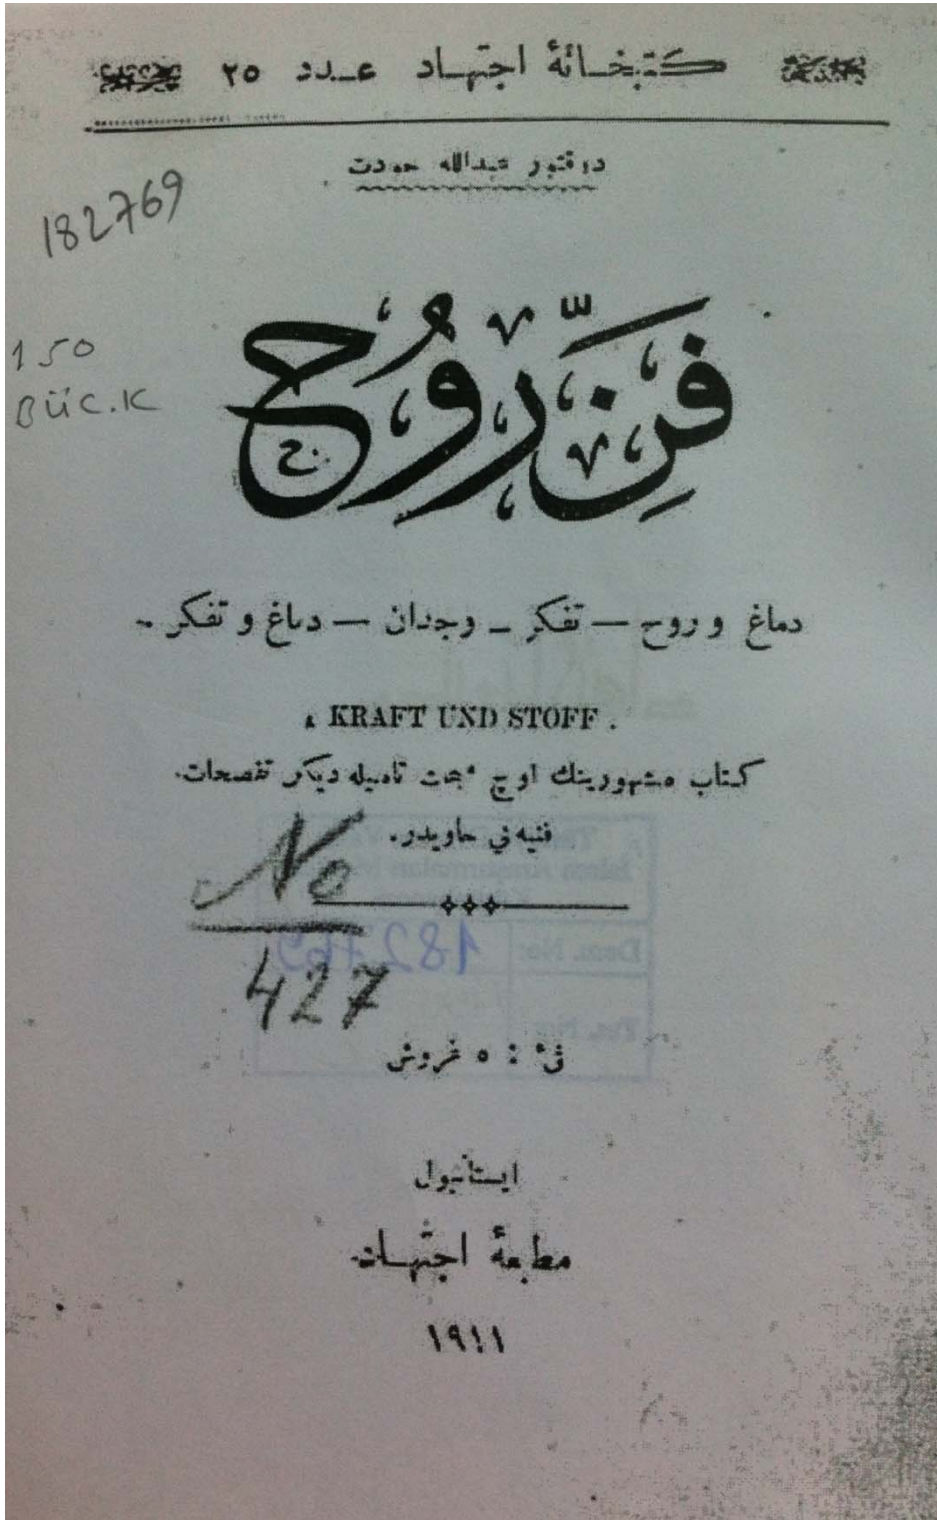 كتبخانهٔ اجتهاد عدد ٢٥
دوقتور عبدالله جودت
182769
فنِّ رُوح
150
BÜC.K
دماغ و روح — تفكر — وجدان — دماغ و تفكر
KRAFT UND STOFF .
كتاب مشهورينك اوچ مبحث تاميله ديكر تفصحات
فنيه ني حاويدر.
No
427
182769
فئ : ٥ غروش
ايستانبول
مطبعهٔ اجتهاد
١٩١١